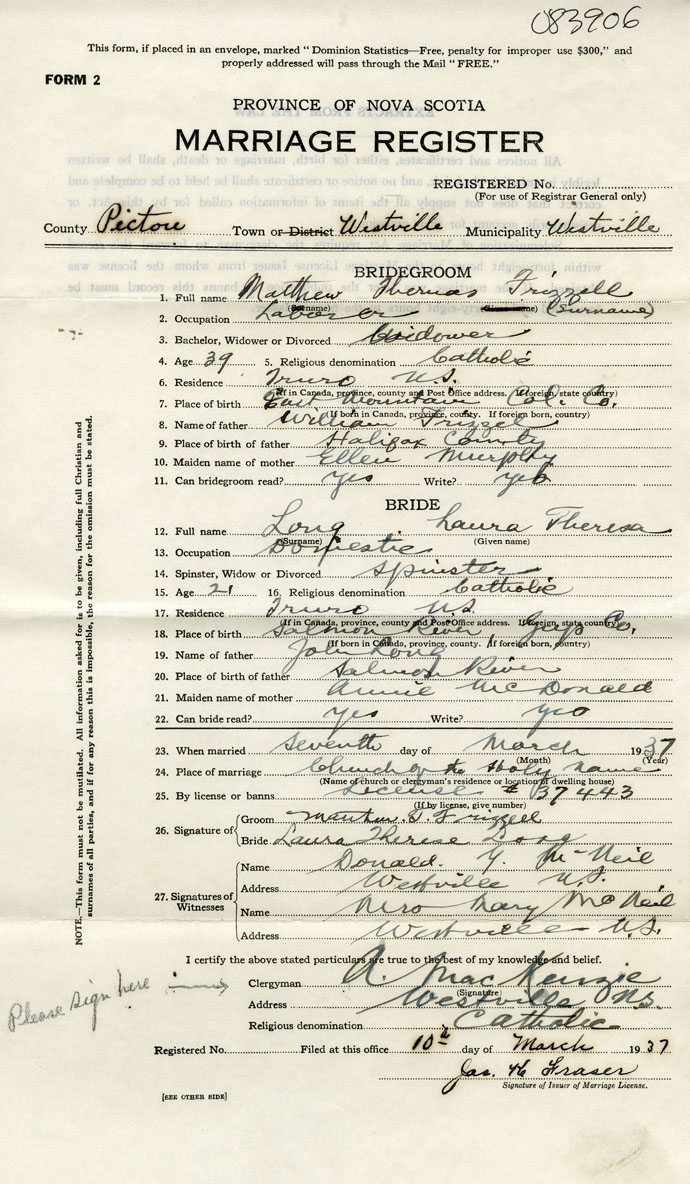 083906
This form, if placed in an envelope, marked "Dominion Statistics—Free, penalty for improper use $300," and
properly addressed will pass through the Mail "FREE."
FORM 2
PROVINCE OF NOVA SCOTIA
MARRIAGE REGISTER
REGISTERED No.
(For use of Registrar General only)
County Pictou Town or District Westville Municipality Westville
BRIDEGROOM
1. Full name Matthew Thomas Frizzell
(Surname)
2. Occupation Laborer
3. Bachelor, Widower or Divorced Widower
4. Age 39 5. Religious denomination Catholic
6. Residence Truro N.S.
(If in Canada, province, county and Post Office address. If foreign, state country)
7. Place of birth East Mountain Col. Co.
(If born in Canada, province, county. If foreign born, country)
8. Name of father William Frizzel
9. Place of birth of father Halifax County
10. Maiden name of mother Ellen Murphy
11. Can bridegroom read? yes Write? yes
BRIDE
12. Full name Long Laura Theresa
(Surname) (Given name)
13. Occupation Domestic
14. Spinster, Widow or Divorced Spinster
15. Age 21 16. Religious denomination Catholic
17. Residence Truro N.S.
(If in Canada, province, county and Post Office address. If foreign, state country)
18. Place of birth Salmon River, Guys Co.
(If born in Canada, province, county. If foreign born, country)
19. Name of father John Long
20. Place of birth of father Salmon River
21. Maiden name of mother Annie McDonald
22. Can bride read? yes Write? yes
23. When married Seventh day of March 1937
(Month) (Year)
24. Place of marriage Church of the Holy Name
(Name of church or clergyman's residence or location of dwelling house)
25. By license or banns License # 37443
(If by license, give number)
26. Signature of
Groom T. Frizzell
Bride Laura Therese Long
27. Signatures of Witnesses
Name Donald Y. McNeil
Address Westville N.S.
Name Mary McNeil
Address Westville N.S.
I certify the above stated particulars are true to the best of my knowledge and belief.
Please sign here
Clergyman A. MacKenzie
(Signature)
Address Westville NS.
Religious denomination Catholic
Registered No. Filed at this office 10th day of March 1937
Jas. H Fraser
Signature of Issuer of Marriage License.
[SEE OTHER SIDE]
NOTE.—This form must not be mutilated. All information asked for is to be given, including full Christian and
surnames of all parties, and if for any reason this is impossible, the reason for the omission must be stated.